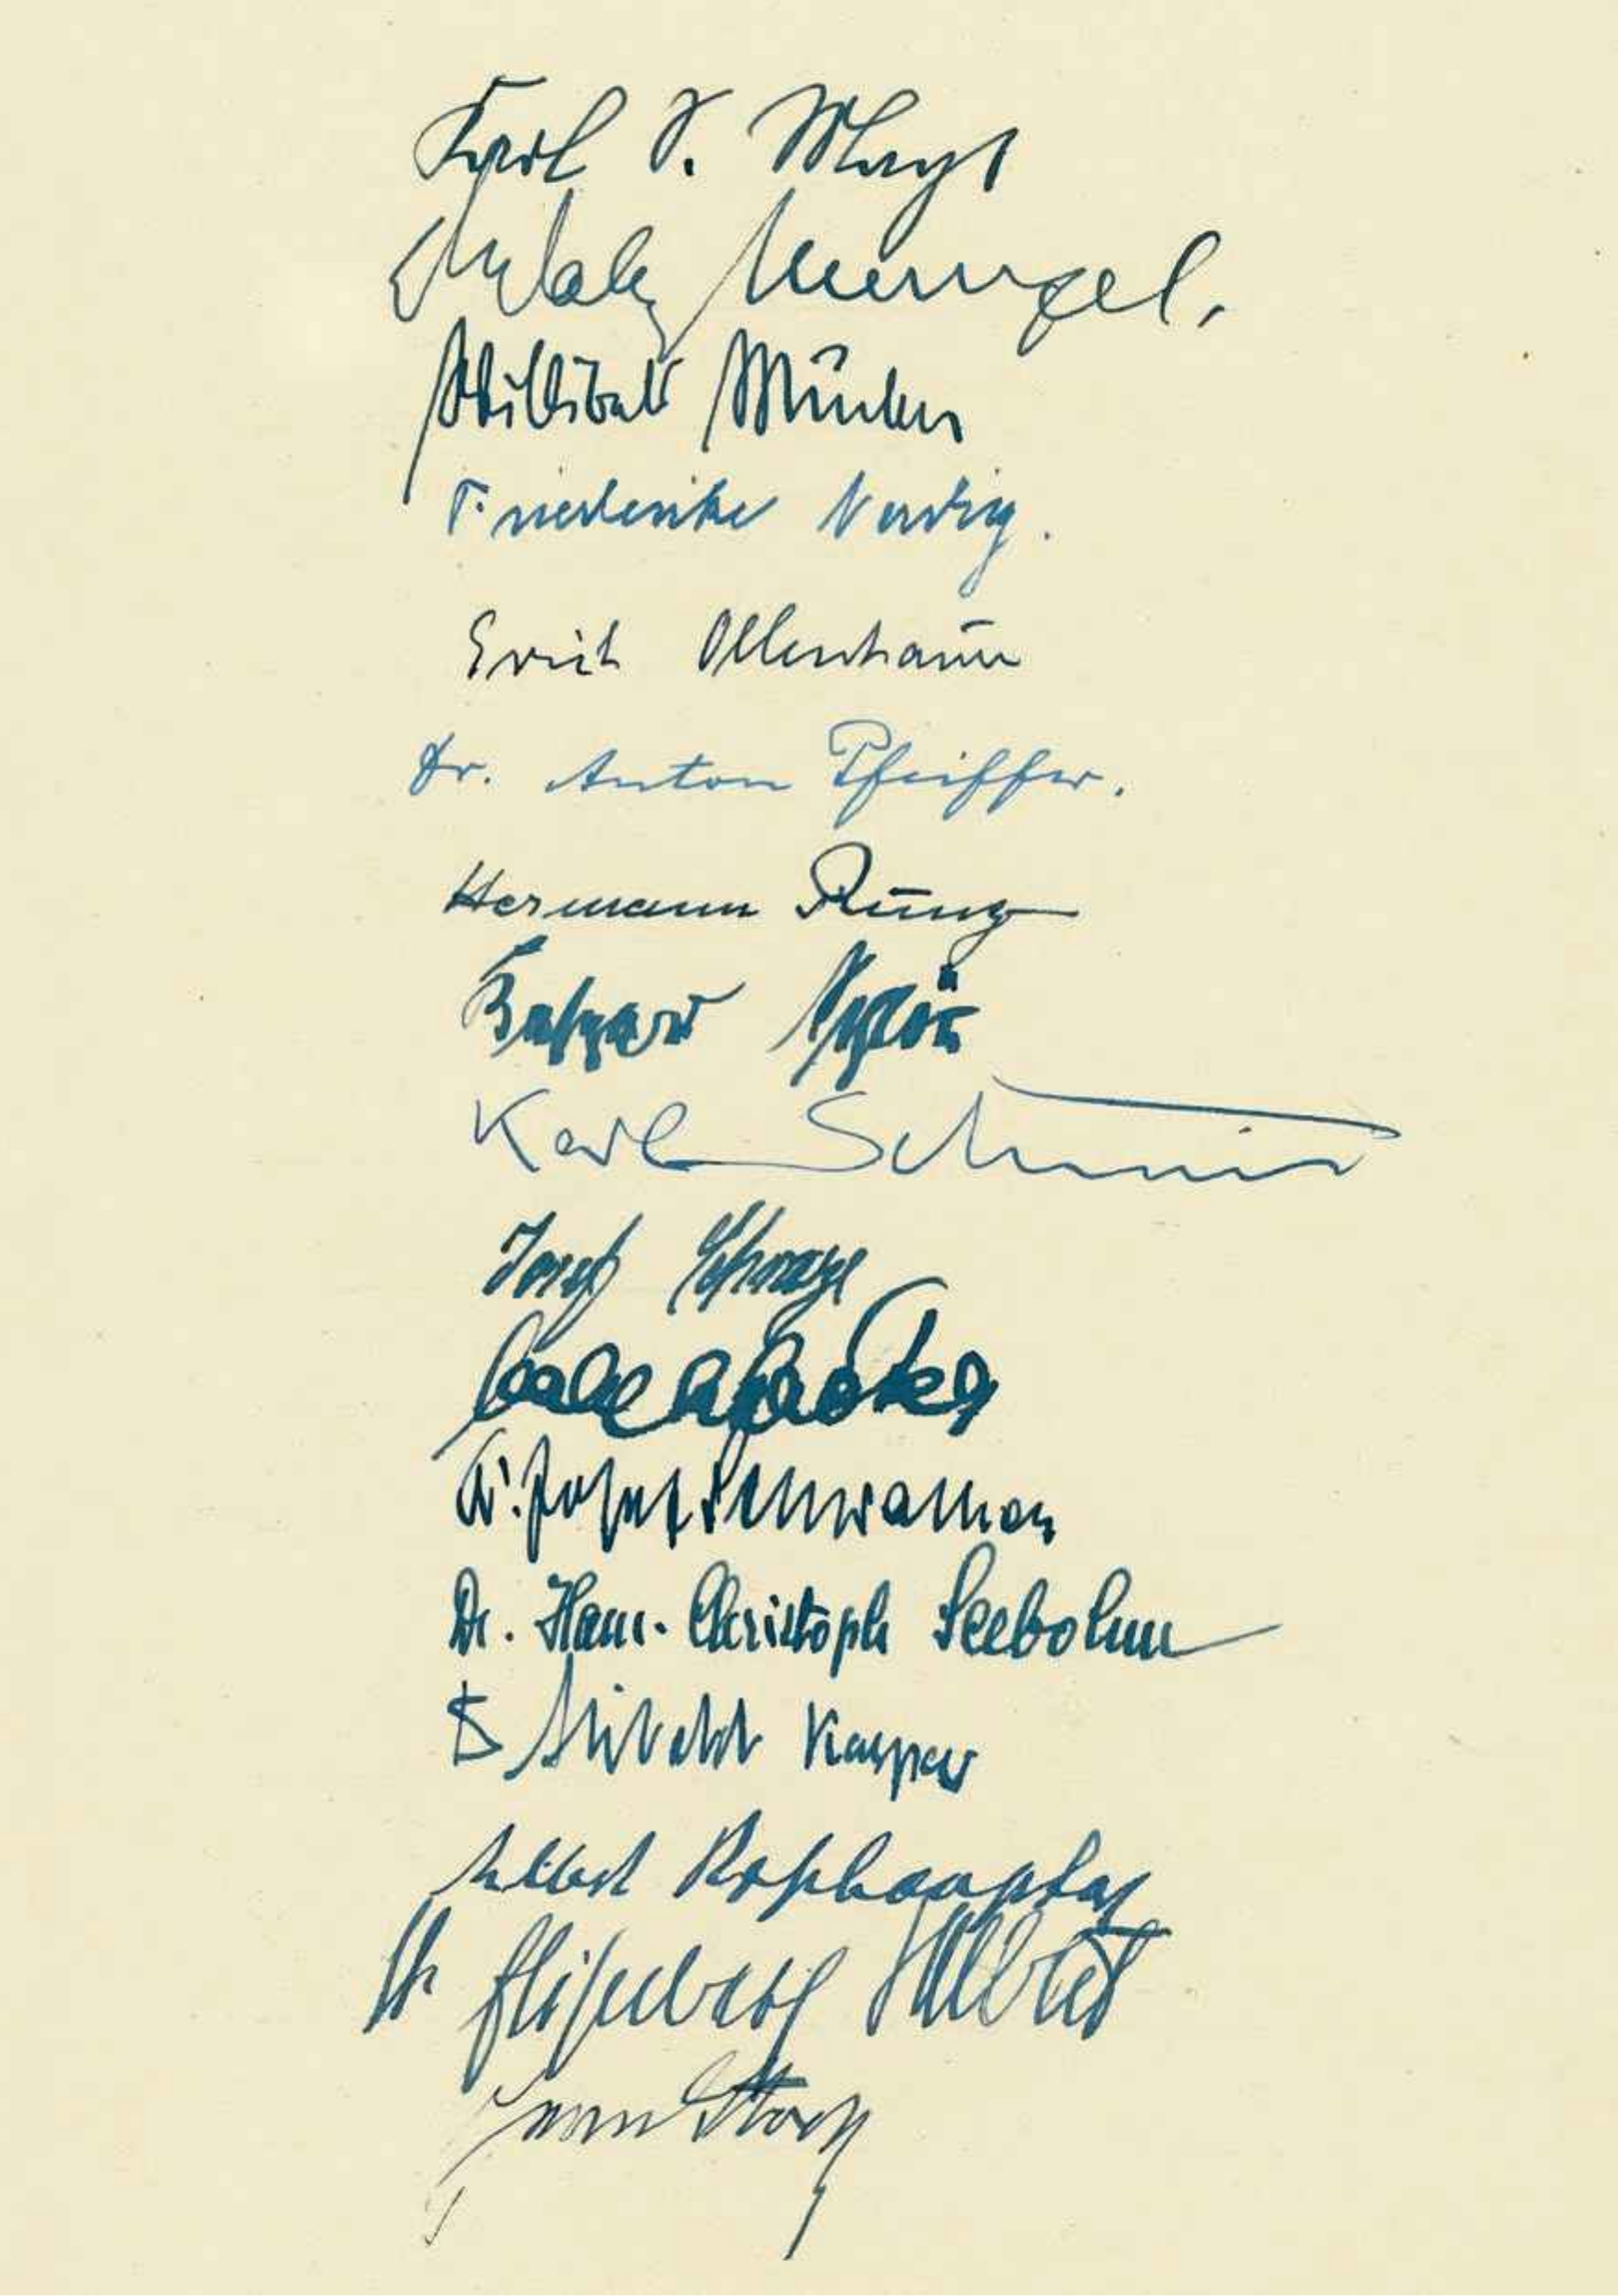 Karl S. Mayr
Walter Menzel.
Willibald Mücke
Friederike Nadig.
Erich Ollenhauer
Dr. Anton Pfeiffer.
Hermann Runge
Kaspar Schlör
Karl Schmid
Josef Schrage
Carl Schröter
Dr. Josef Schwalber
Dr. Hans-Christoph Seebohm
Dr Seibold Kaspar
Albert Roßhaupter
Dr Elisabeth Selbert
Jean Stock